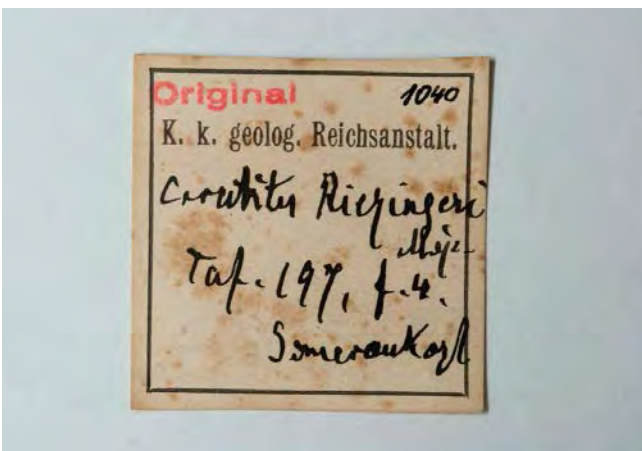 Original 1040
K. k. geolog. Reichsanstalt.
Riezingeri
Mojs.
Taf. 197, f. 4.
Someraukogl